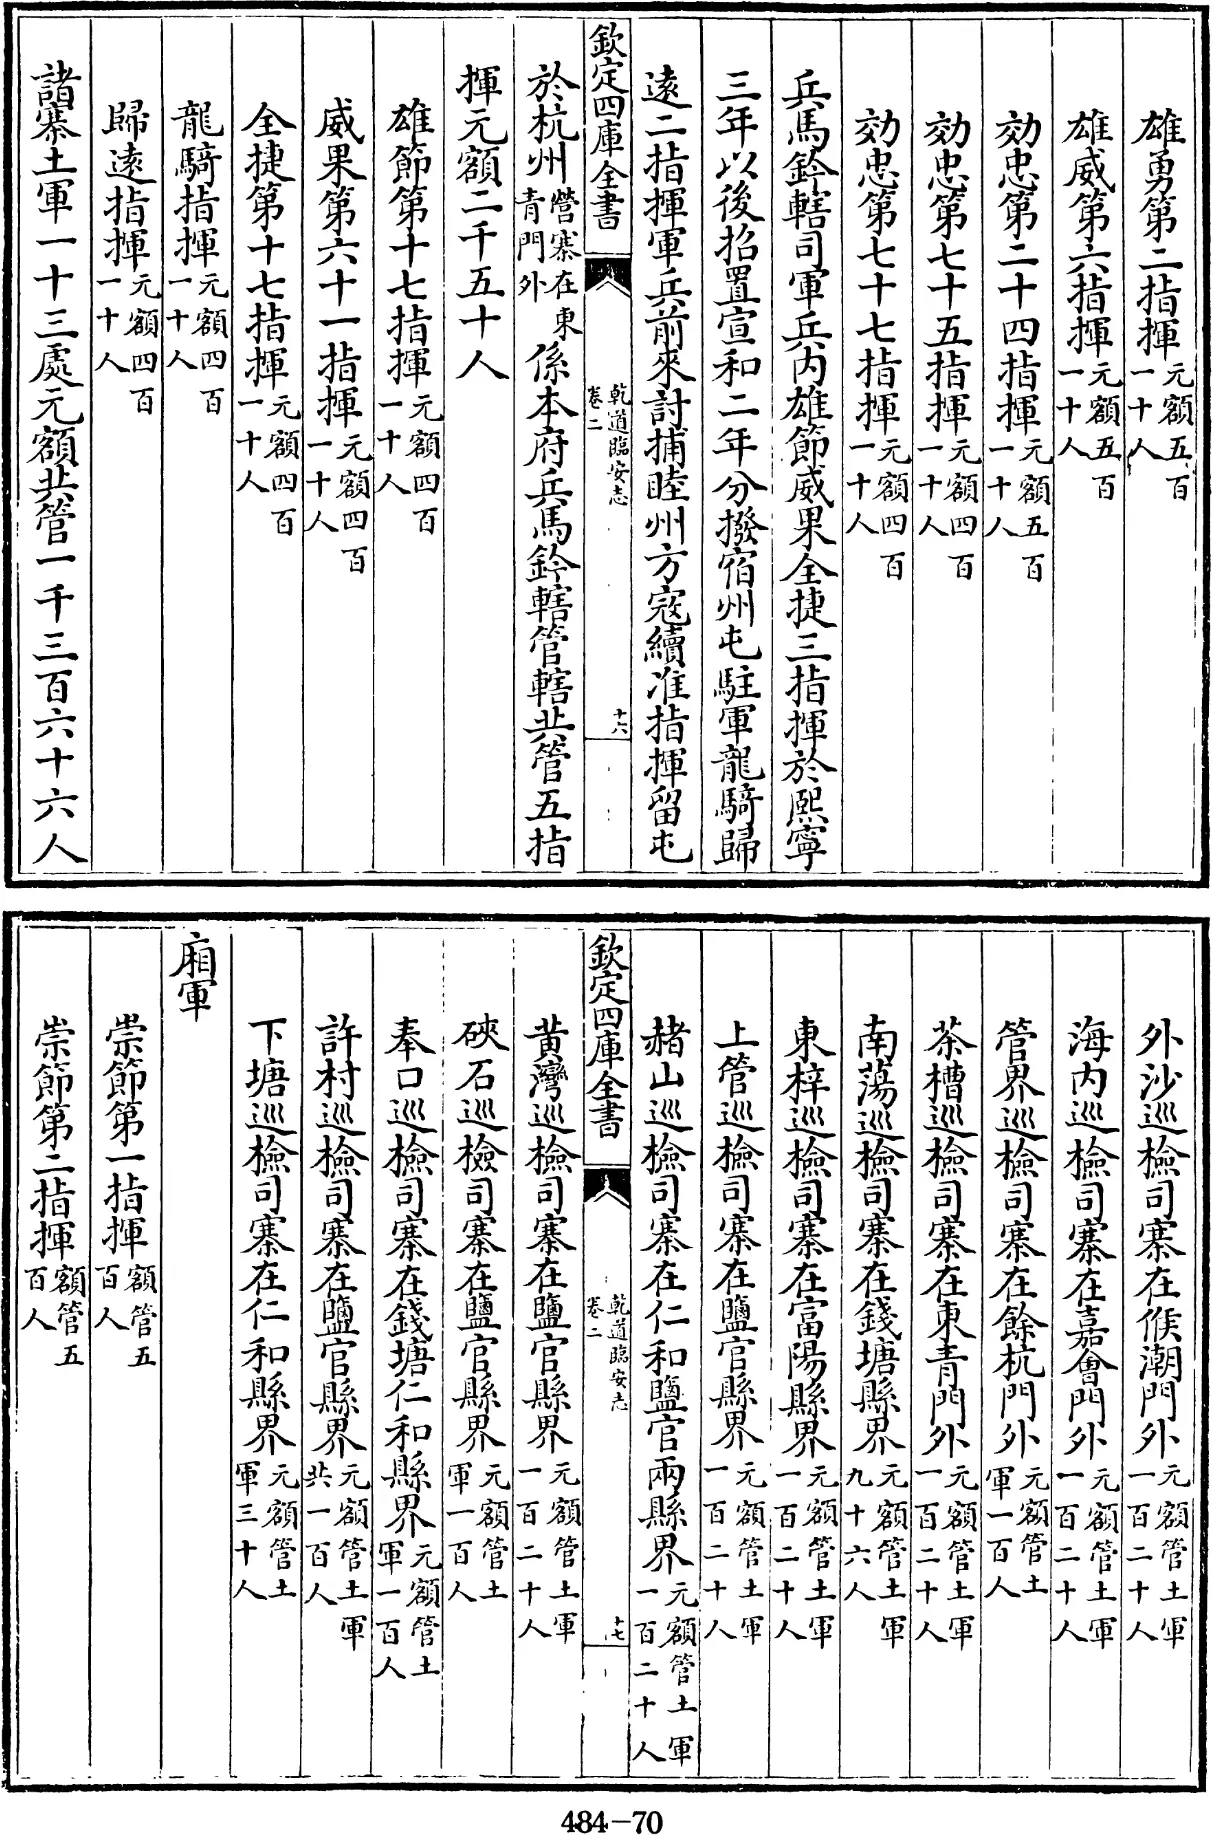 雄勇第二指揮元額五百一十人
雄威第六指揮元額五百一十人
効忠第二十四指揮元額五百一十人
効忠第七十五指揮元額四百一十人
効忠第七十七指揮元額四百一十人
兵馬鈐轄司軍兵内雄節威果全捷三指揮於熙寧
三年以後招置宣和二年分撥宿州屯駐軍龍騎歸
遠二指揮軍兵前來討捕睦州方寇續准指揮留屯
欽定四庫全書
乾道臨安志
卷二
十六
於杭州營寨在東青門外係本府兵馬鈐轄管轄共管五指
揮元額二千五十人
雄節第十七指揮元額四百一十人
威果第六十一指揮元額四百一十人
全捷第十七指揮元額四百一十人
龍騎指揮元額四百一十人
歸遠指揮元額四百一十人
諸寨土軍一十三處元額共管一千三百六十六人
外沙巡檢司寨在候潮門外元額管土軍一百二十人
海内巡檢司寨在嘉會門外元額管土軍一百二十人
管界巡檢司寨在餘杭門外元額管土軍一百人
茶槽巡檢司寨在東青門外元額管土軍一百二十人
南蕩巡檢司寨在錢塘縣界元額管土軍九十六人
東梓巡檢司寨在富陽縣界元額管土軍一百二十人
上管巡檢司寨在鹽官縣界元額管土軍一百二十人
赭山巡檢司寨在仁和鹽官兩縣界元額管土軍一百二十人
欽定四庫全書
乾道臨安志
卷二
十七
黄灣巡檢司寨在鹽官縣界元額管土軍一百二十人
硤石巡檢司寨在鹽官縣界元額管土軍一百人
奉口巡檢司寨在錢塘仁和縣界元額管土軍一百人
許村巡檢司寨在鹽官縣界元額管土軍共一百人
下塘巡檢司寨在仁和縣界元額管土軍三十人
廂軍
崇節第一指揮額管五百人
崇節第二指揮額管五百人
484-70